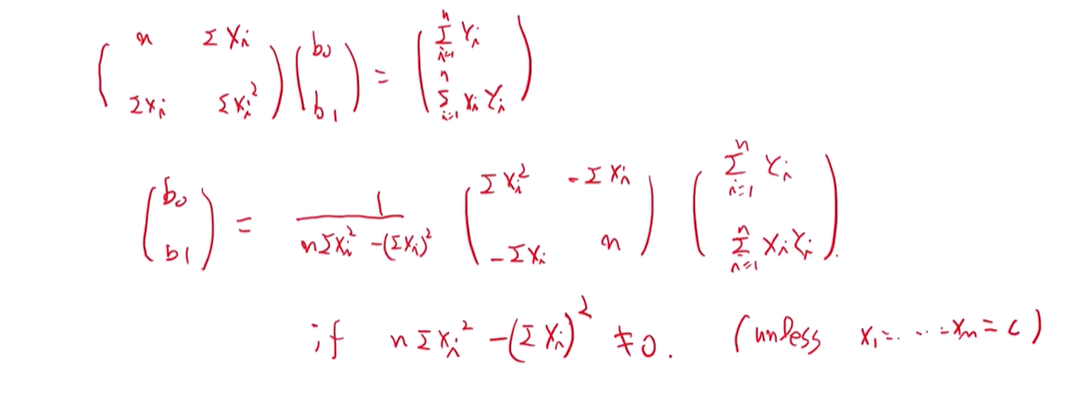 ( n ΣXi ; ΣXi ΣXi² ) ( b0 ; b1 ) = ( Σ_{i=1}^{n} Yi ; Σ_{i=1}^{n} Xi Yi )
( b0 ; b1 ) = 1 / (nΣXi² - (ΣXi)²) ( ΣXi² -ΣXi ; -ΣXi n ) ( Σ_{i=1}^{n} Yi ; Σ_{i=1}^{n} Xi Yi ).
if nΣXi² - (ΣXi)² ≠ 0. (unless X1 = ... = Xn = c)